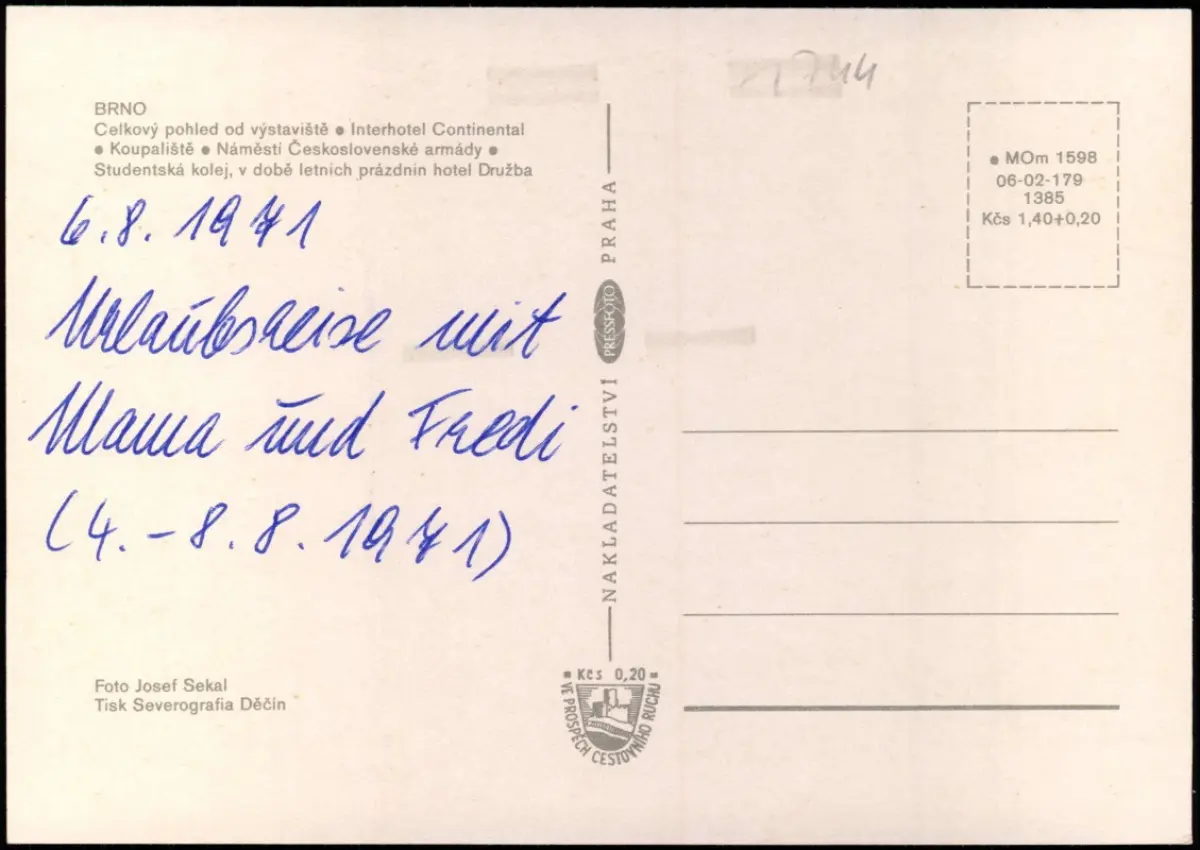 1744
BRNO
Celkový pohled od výstaviště ● Interhotel Continental
● Koupaliště ● Náměstí Československé armády ●
Studentská kolej, v době letních prázdnin hotel Družba
6.8.1971
Urlaubsreise mit
Mama und Fredi
(4.-8.8.1971)
Foto Josef Sekal
Tisk Severografia Děčín
NAKLADATELSTVÍ PRESSFOTO PRAHA
Kčs 0,20
VE PROSPĚCH CESTOVNÍHO RUCHU
● MOm 1598
06-02-179
1385
Kčs 1,40+0,20